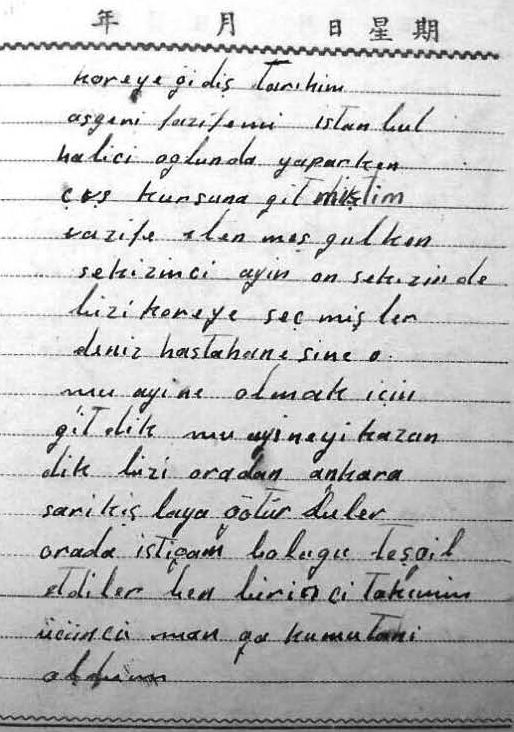 年 月 日 星 期
koreye gidiş Tarihim
asgeri fazifemi istanbul
halici oglunda yaparken
çvş kursuna gitmiştim
vazife elen meş gulken
sekizinci ayin on sekizin de
bizi koreye seç miş ler
deniz hastahane sine o.
mu ayine olmak için
git dik mu ayineyi kazan
dik bizi oradan ankara
sarikiş laya götür düler
orada istiçam bolugu teşgil
etdiler ben birinci takimin
üçüncü man ga kumutani
oldum